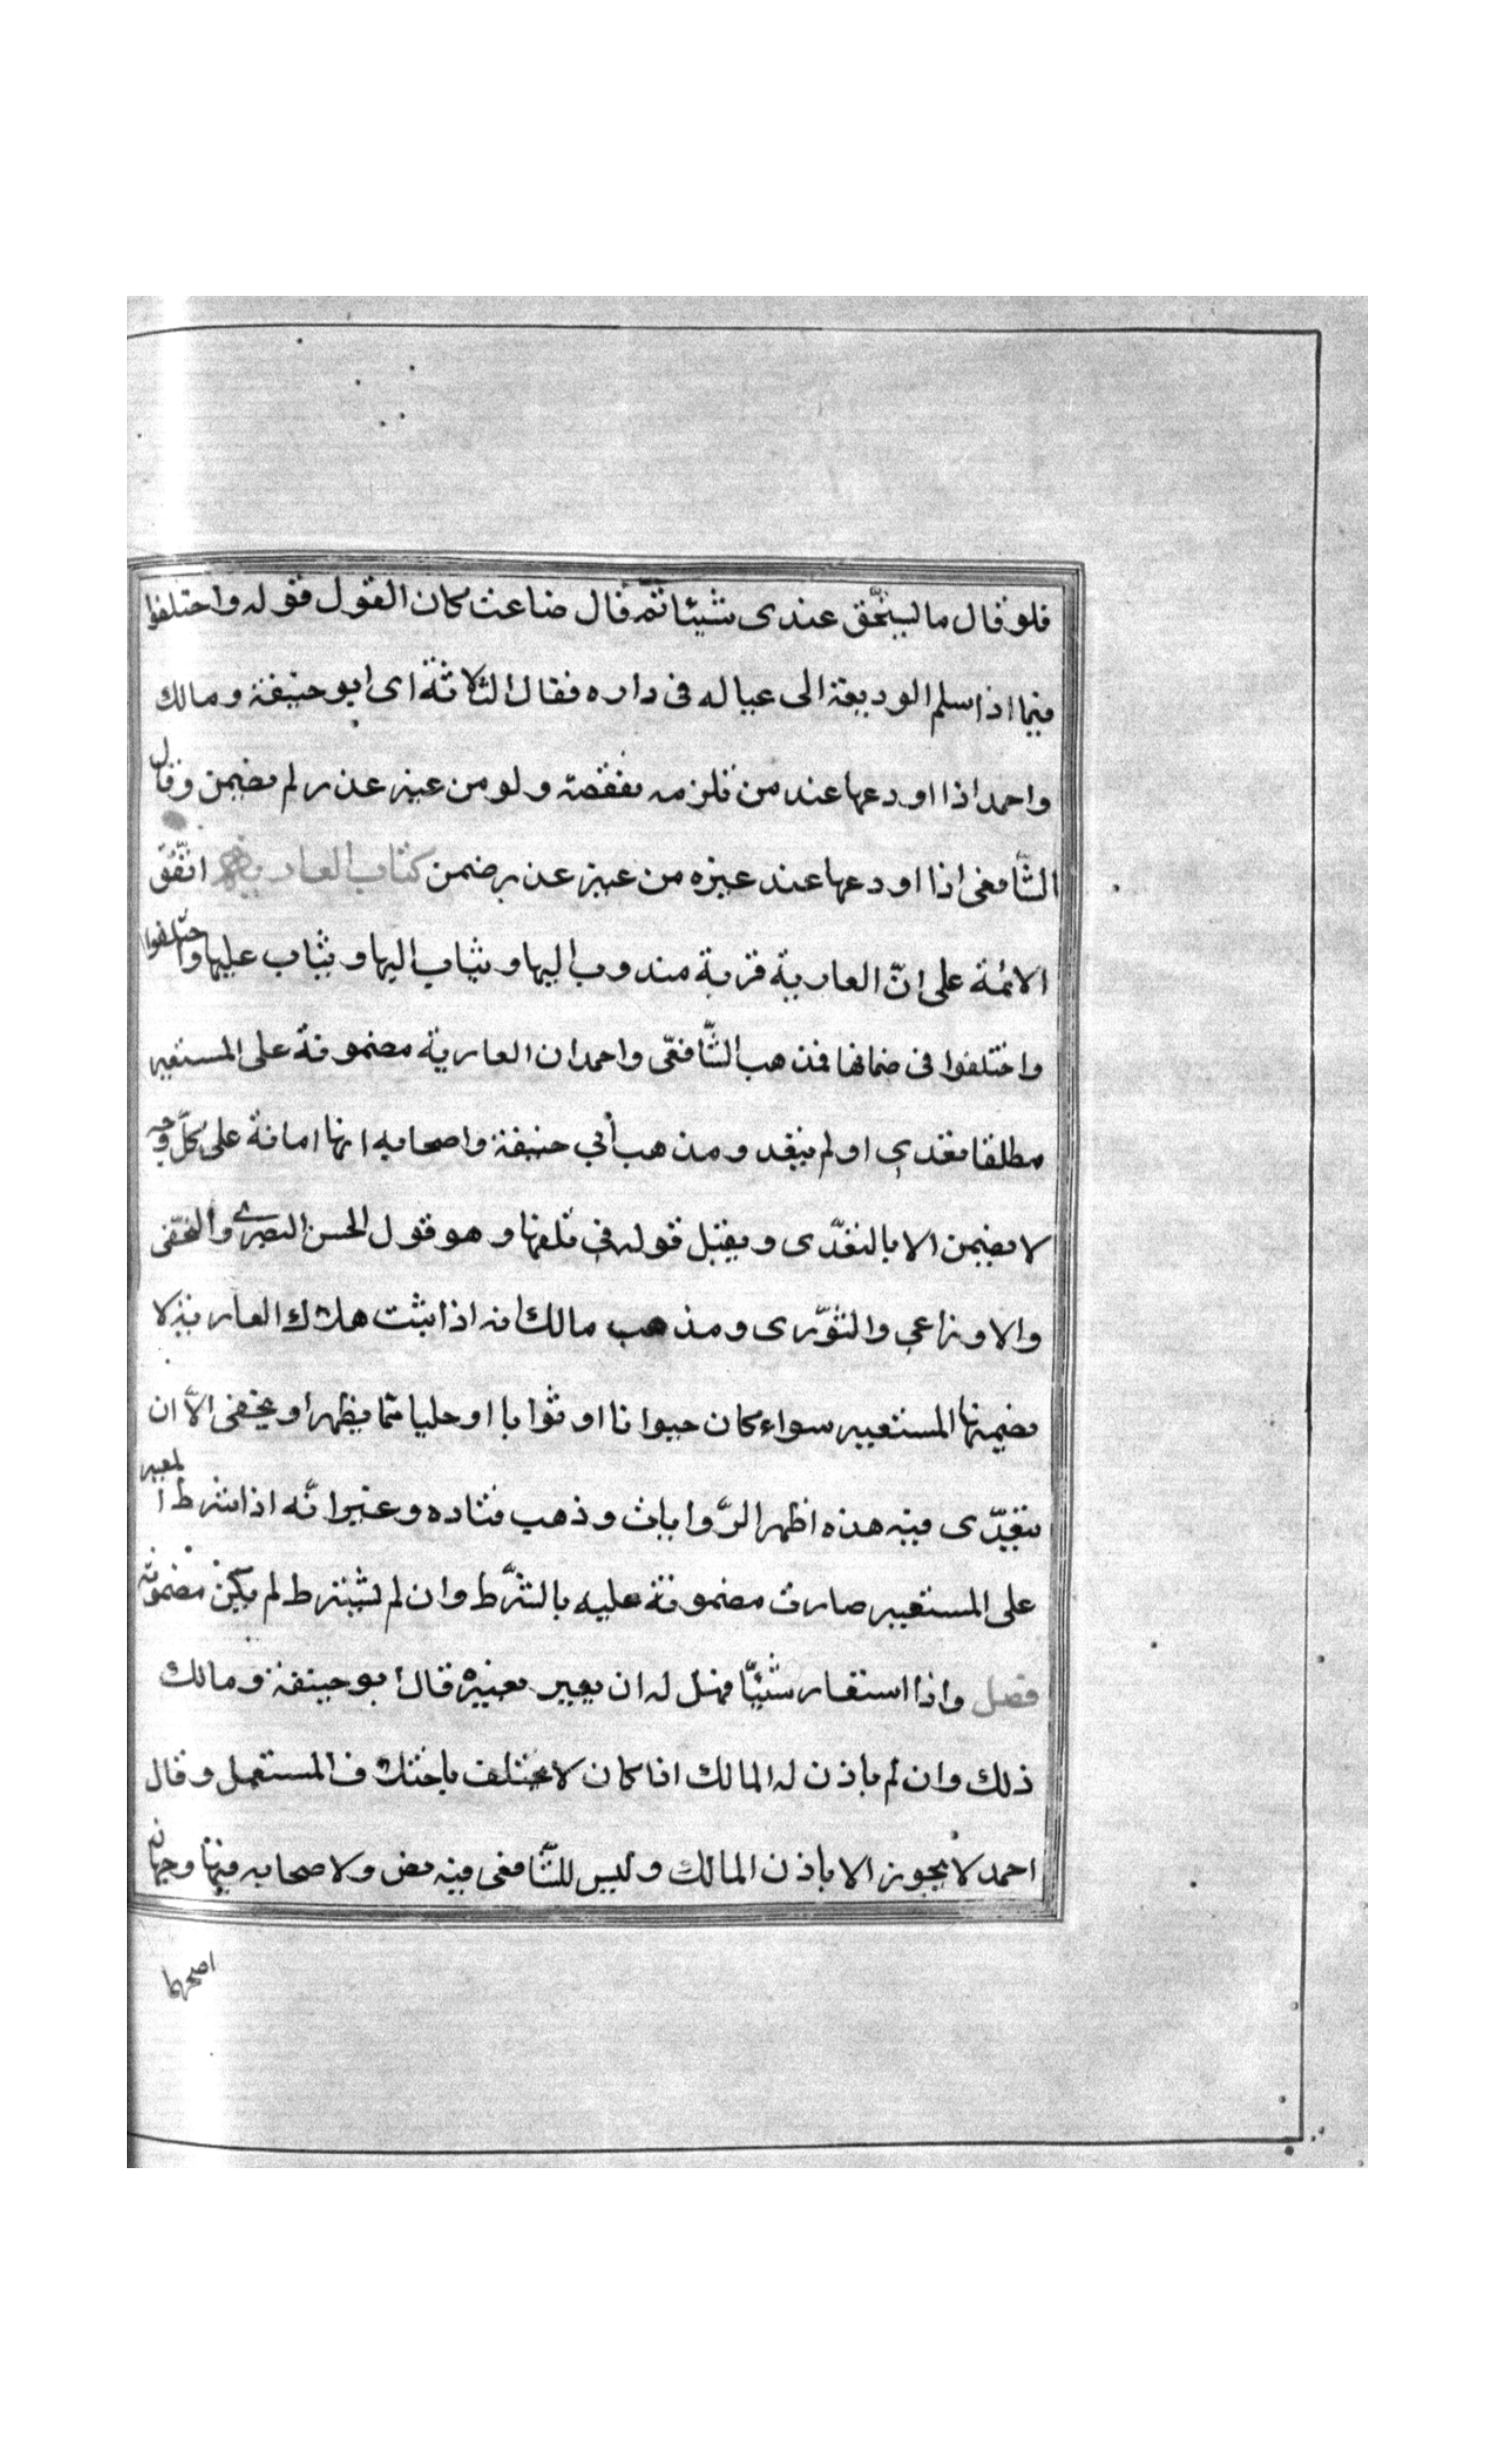 فلو قال ما يستحق عندى شيئا ثم قال ضاعت كان القول قوله واختلفوا
فيما اذا سلم الوديعة الى عياله فى داره فقال الثلاثة اى ابو حنيفة ومالك
واحمد اذا اودعها عند من تلزمه نفقته ولو من غير عذر لم يضمن وقال
الشّافعى اذا اودعها عند غيره من غير عذر ضمن كتاب العارية اتّفق
الائمة على انّ العارية قربة مندوب اليها ويثاب اليها ويثاب عليها واختلفوا
واختلفوا فى ضمانها فمذهب الشّافعّى واحمد ان العارية مضمونة على المستعير
مطلقا تعدى او لم يتعد ومذهب أبي حنيفة واصحابه انها امانة على كلّ وجه
لا يضمن الا بالتعدّى ويقبل قوله في تلفها وهو قول الحسن البصرى والنخعّى
والاوزاعي والثوّرى ومذهب مالك انه اذا ثبت هلاك العارية لا
يضمنها المستعير سواء كان حيوانا او ثوابا او حليا ممّا يظهر او يخفى الاّ ان
يتعدّى فيه هذه اظهر الرّوايات وذهب قتاده وغيره انّه اذا شرط المعير
على المستعير صارت مضمونة عليه بالشّرط وان لم يشترط لم يكن مضمونة
فصل واذا استعار شيئّا فهل له ان يعير لغيره قال ابو حنيفة ومالك
ذلك وان لم ياذن له المالك اذا كان لا يختلف باختلاف المستعمل وقال
احمد لا يجوز الا باذن المالك وليس للشّافعى فيه نص ولاصحابه فيها وجهان
اصحهما